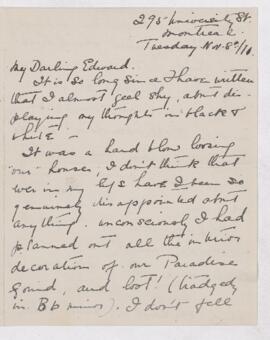 295 University St.
Montreal.
Tuesday Nov. 8th/10.
My Darling Edward.
It is so long since I have written
that I almost feel shy, about dis-
playing my thoughts in black &
white -
It was a hard blow losing
"our" house, I don't think that
ever in my life have I been so
genuinely disappointed about
anything. unconsciously I had
planned out all the interior
decorations of our Paradise
found, and lost! (tradgedy
in Bb minor). I don't fell